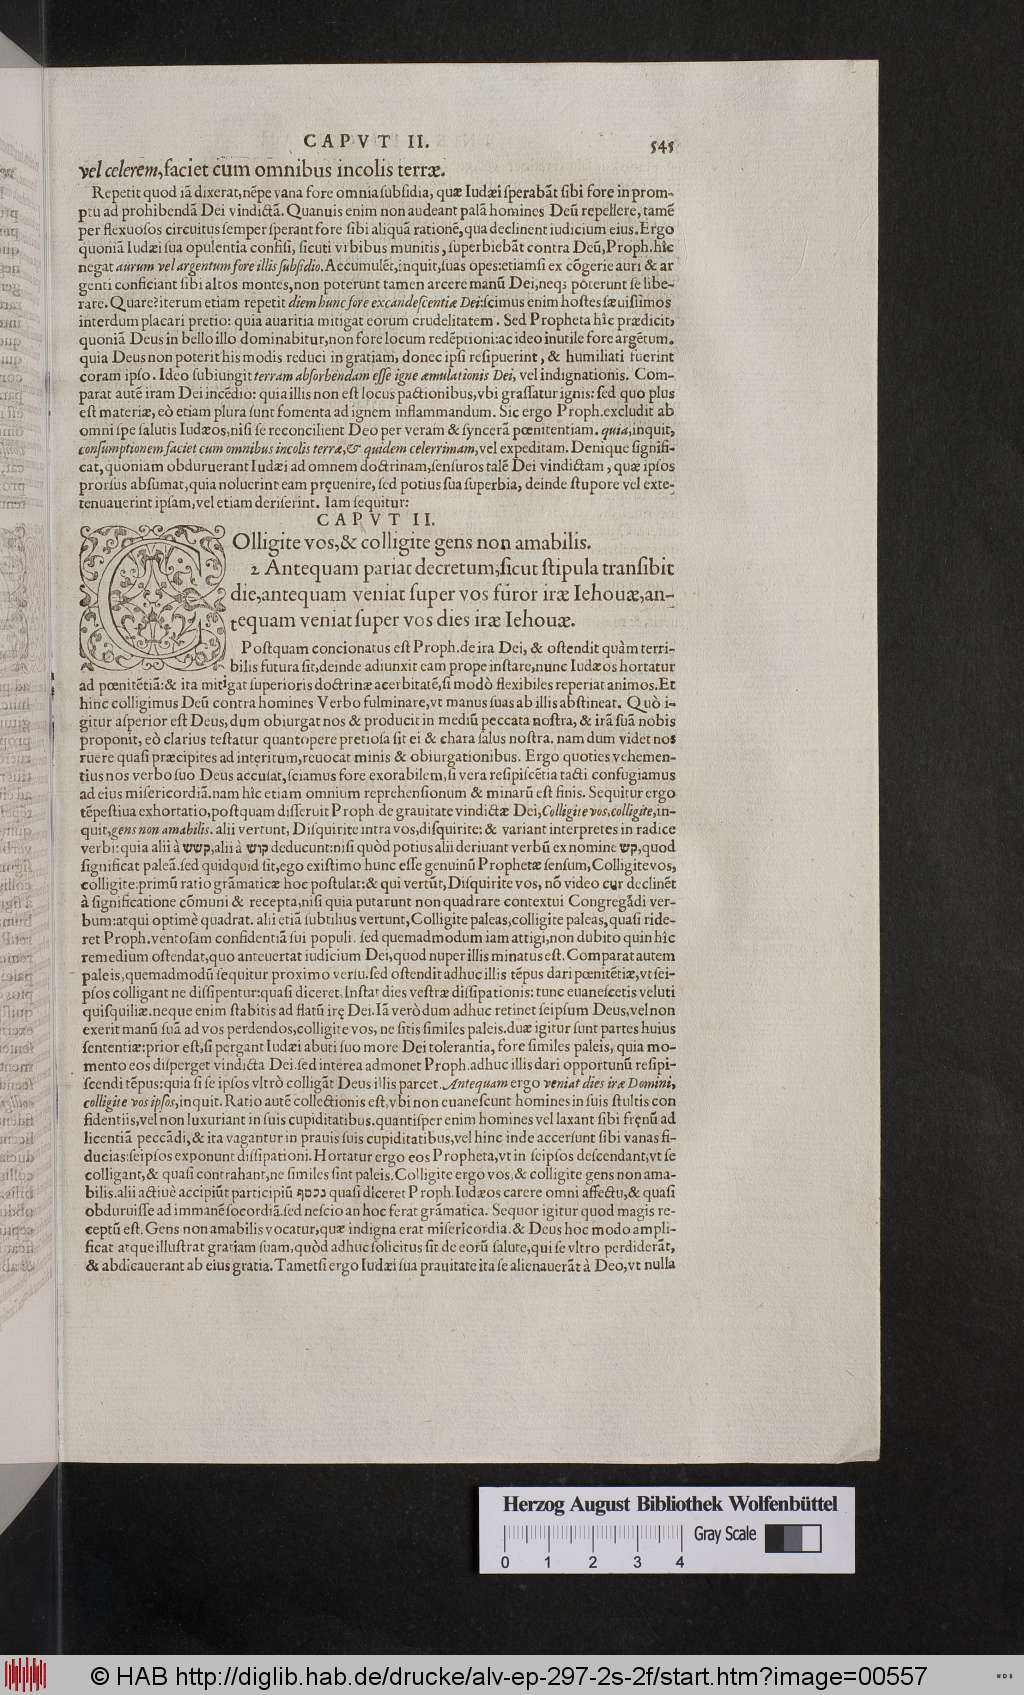 CAPVT II.
545
vel celerem, faciet cum omnibus incolis terræ.
Repetit quod iã dixerat, nẽpe vana fore omnia ſubſidia, quæ Iudæi ſperabãt ſibi fore in prom-
ptu ad prohibendã Dei vindictã. Quanuis enim non audeant palã homines Deũ repellere, tamẽ
per flexuoſos circuitus ſemper ſperant fore ſibi aliquã rationẽ, qua declinent iudicium eius. Ergo
quoniã Iudæi ſua opulentia confiſi, ſicuti vrbibus munitis, ſuperbiebãt contra Deũ, Proph. hîc
negat aurum vel argentum fore illis ſubſidio. Accumulẽt, inquit, ſuas opes: etiamſi ex cõgerie auri & ar
genti conficiant ſibi altos montes, non poterunt tamen arcere manũ Dei, neq; poterunt ſe libe-
rare. Quare? iterum etiam repetit diem hunc fore excandeſcentiæ Dei: ſcimus enim hoſtes ſæuiſſimos
interdum placari pretio: quia auaritia mitigat eorum crudelitatem. Sed Propheta hîc prædicit,
quoniã Deus in bello illo dominabitur, non fore locum redẽptioni: ac ideo inutile fore argẽtum.
quia Deus non poterit his modis reduci in gratiam, donec ipſi reſipuerint, & humiliati fuerint
coram ipſo. Ideo ſubiungit terram abſorbendam eſſe igne æmulationis Dei, vel indignationis. Com-
parat autẽ iram Dei incẽdio: quia illis non eſt locus pactionibus, vbi graſſatur ignis: ſed quo plus
eſt materiæ, eò etiam plura ſunt fomenta ad ignem inflammandum. Sic ergo Proph. excludit ab
omni ſpe ſalutis Iudæos, niſi ſe reconcilient Deo per veram & ſyncerã pœnitentiam. quia, inquit,
conſumptionem faciet cum omnibus incolis terræ, & quidem celerrimam, vel expeditam. Denique ſignifi-
cat, quoniam obduruerant Iudæi ad omnem doctrinam, ſenſuros talẽ Dei vindictam, quæ ipſos
prorſus abſumat, quia noluerint eam pręuenire, ſed potius ſua ſuperbia, deinde ſtupore vel exte-
tenuauerint ipſam, vel etiam deriſerint. Iam ſequitur:
CAPVT II.
COlligite vos, & colligite gens non amabilis.
2 Antequam pariat decretum, ſicut ſtipula tranſibit
die, antequam veniat ſuper vos furor iræ Iehouæ, an-
tequam veniat ſuper vos dies iræ Iehouæ.
Poſtquam concionatus eſt Proph. de ira Dei, & oſtendit quàm terri-
bilis futura ſit, deinde adiunxit eam prope inſtare, nunc Iudæos hortatur
ad pœnitẽtiã: & ita mitigat ſuperioris doctrinæ acerbitatẽ, ſi modò flexibiles reperiat animos. Et
hinc colligimus Deũ contra homines Verbo fulminare, vt manus ſuas ab illis abſtineat. Quò i-
gitur aſperior eſt Deus, dum obiurgat nos & producit in mediũ peccata noſtra, & irã ſuã nobis
proponit, eò clarius teſtatur quantopere pretioſa ſit ei & chara ſalus noſtra. nam dum videt nos
ruere quaſi præcipites ad interitum, reuocat minis & obiurgationibus. Ergo quoties vehemen-
tius nos verbo ſuo Deus accuſat, ſciamus fore exorabilem, ſi vera reſipiſcẽtia tacti confugiamus
ad eius miſericordiã. nam hîc etiam omnium reprehenſionum & minarũ eſt finis. Sequitur ergo
tẽpeſtiua exhortatio, poſtquam diſſeruit Proph. de grauitate vindictæ Dei, Colligite vos, colligite, in-
quit, gens non amabilis. alii vertunt, Diſquirite intra vos, diſquirite: & variant interpretes in radice
verbi: quia alii à קשש, alii à קוש deducunt: niſi quòd potius alii deriuant verbũ ex nomine קש, quod
ſignificat paleã. ſed quidquid ſit, ego exiſtimo hunc eſſe genuinũ Prophetæ ſenſum, Colligite vos,
colligite: primũ ratio grãmaticæ hoc poſtulat: & qui vertũt, Diſquirite vos, nõ video cur declinẽt
à ſignificatione cõmuni & recepta, niſi quia putarunt non quadrare contextui Congregãdi ver-
bum: atqui optimè quadrat. alii etiã ſubtilius vertunt, Colligite paleas, colligite paleas, quaſi ride-
ret Proph. ventoſam confidentiã ſui populi. ſed quemadmodum iam attigi, non dubito quin hîc
remedium oſtendat, quo anteuertat iudicium Dei, quod nuper illis minatus eſt. Comparat autem
paleis, quemadmodũ ſequitur proximo verſu. ſed oſtendit adhuc illis tẽpus dari pœnitẽtiæ, vt ſei-
pſos colligant ne diſſipentur: quaſi diceret, Inſtat dies veſtræ diſſipationis: tunc euaneſcetis veluti
quiſquiliæ. neque enim ſtabitis ad flatũ irę Dei. Iã verò dum adhuc retinet ſeipſum Deus, vel non
exerit manũ ſuã ad vos perdendos, colligite vos, ne ſitis ſimiles paleis. duæ igitur ſunt partes huius
ſententiæ: prior eſt, ſi pergant Iudæi abuti ſuo more Dei tolerantia, fore ſimiles paleis, quia mo-
mento eos diſperget vindicta Dei. ſed interea admonet Proph. adhuc illis dari opportunũ reſipi-
ſcendi tẽpus: quia ſi ſe ipſos vltrò colligãt Deus illis parcet. Antequam ergo veniat dies iræ Domini,
colligite vos ipſos, inquit. Ratio autẽ collectionis eſt, vbi non euaneſcunt homines in ſuis ſtultis con
fidentiis, vel non luxuriant in ſuis cupiditatibus. quantiſper enim homines vel laxant ſibi fręnũ ad
licentiã peccãdi, & ita vagantur in prauis ſuis cupiditatibus, vel hinc inde accerſunt ſibi vanas fi-
ducias: ſeipſos exponunt diſſipationi. Hortatur ergo eos Propheta, vt in ſeipſos deſcendant, vt ſe
colligant, & quaſi contrahant, ne ſimiles ſint paleis. Colligite ergo vos, & colligite gens non ama-
bilis. alii actiuè accipiũt participiũ נכסף quaſi diceret Proph. Iudæos carere omni affectu, & quaſi
obduruiſſe ad immanẽ ſocordiã. ſed neſcio an hoc ferat grãmatica. Sequor igitur quod magis re-
ceptũ eſt. Gens non amabilis vocatur, quæ indigna erat miſericordia. & Deus hoc modo ampli-
ficat atque illuſtrat gratiam ſuam, quòd adhuc ſolicitus ſit de eorũ ſalute, qui ſe vltro perdiderãt,
& abdicauerant ab eius gratia. Tametſi ergo Iudæi ſua prauitate ita ſe alienauerãt à Deo, vt nulla
Herzog August Bibliothek Wolfenbüttel
Gray Scale
0 1 2 3 4
© HAB http://diglib.hab.de/drucke/alv-ep-297-2s-2f/start.htm?image=00557